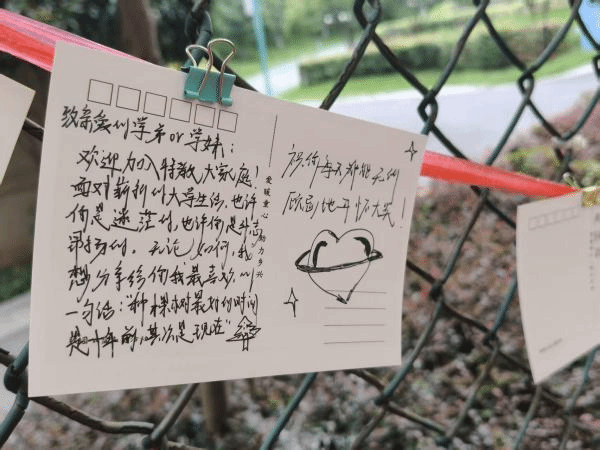 致亲爱的学弟or学妹：
欢迎加入特教大家庭！
面对崭新的大学生活，也许
你是迷茫的，也许你是斗志
昂扬的，无论如何，我
想分享给你我最喜欢的
一句话："种一棵树最好的时间
是十年前，其次是现在"
爱暖童心
助力乡兴
祝你每天都能无所
顾忌地开怀大笑！